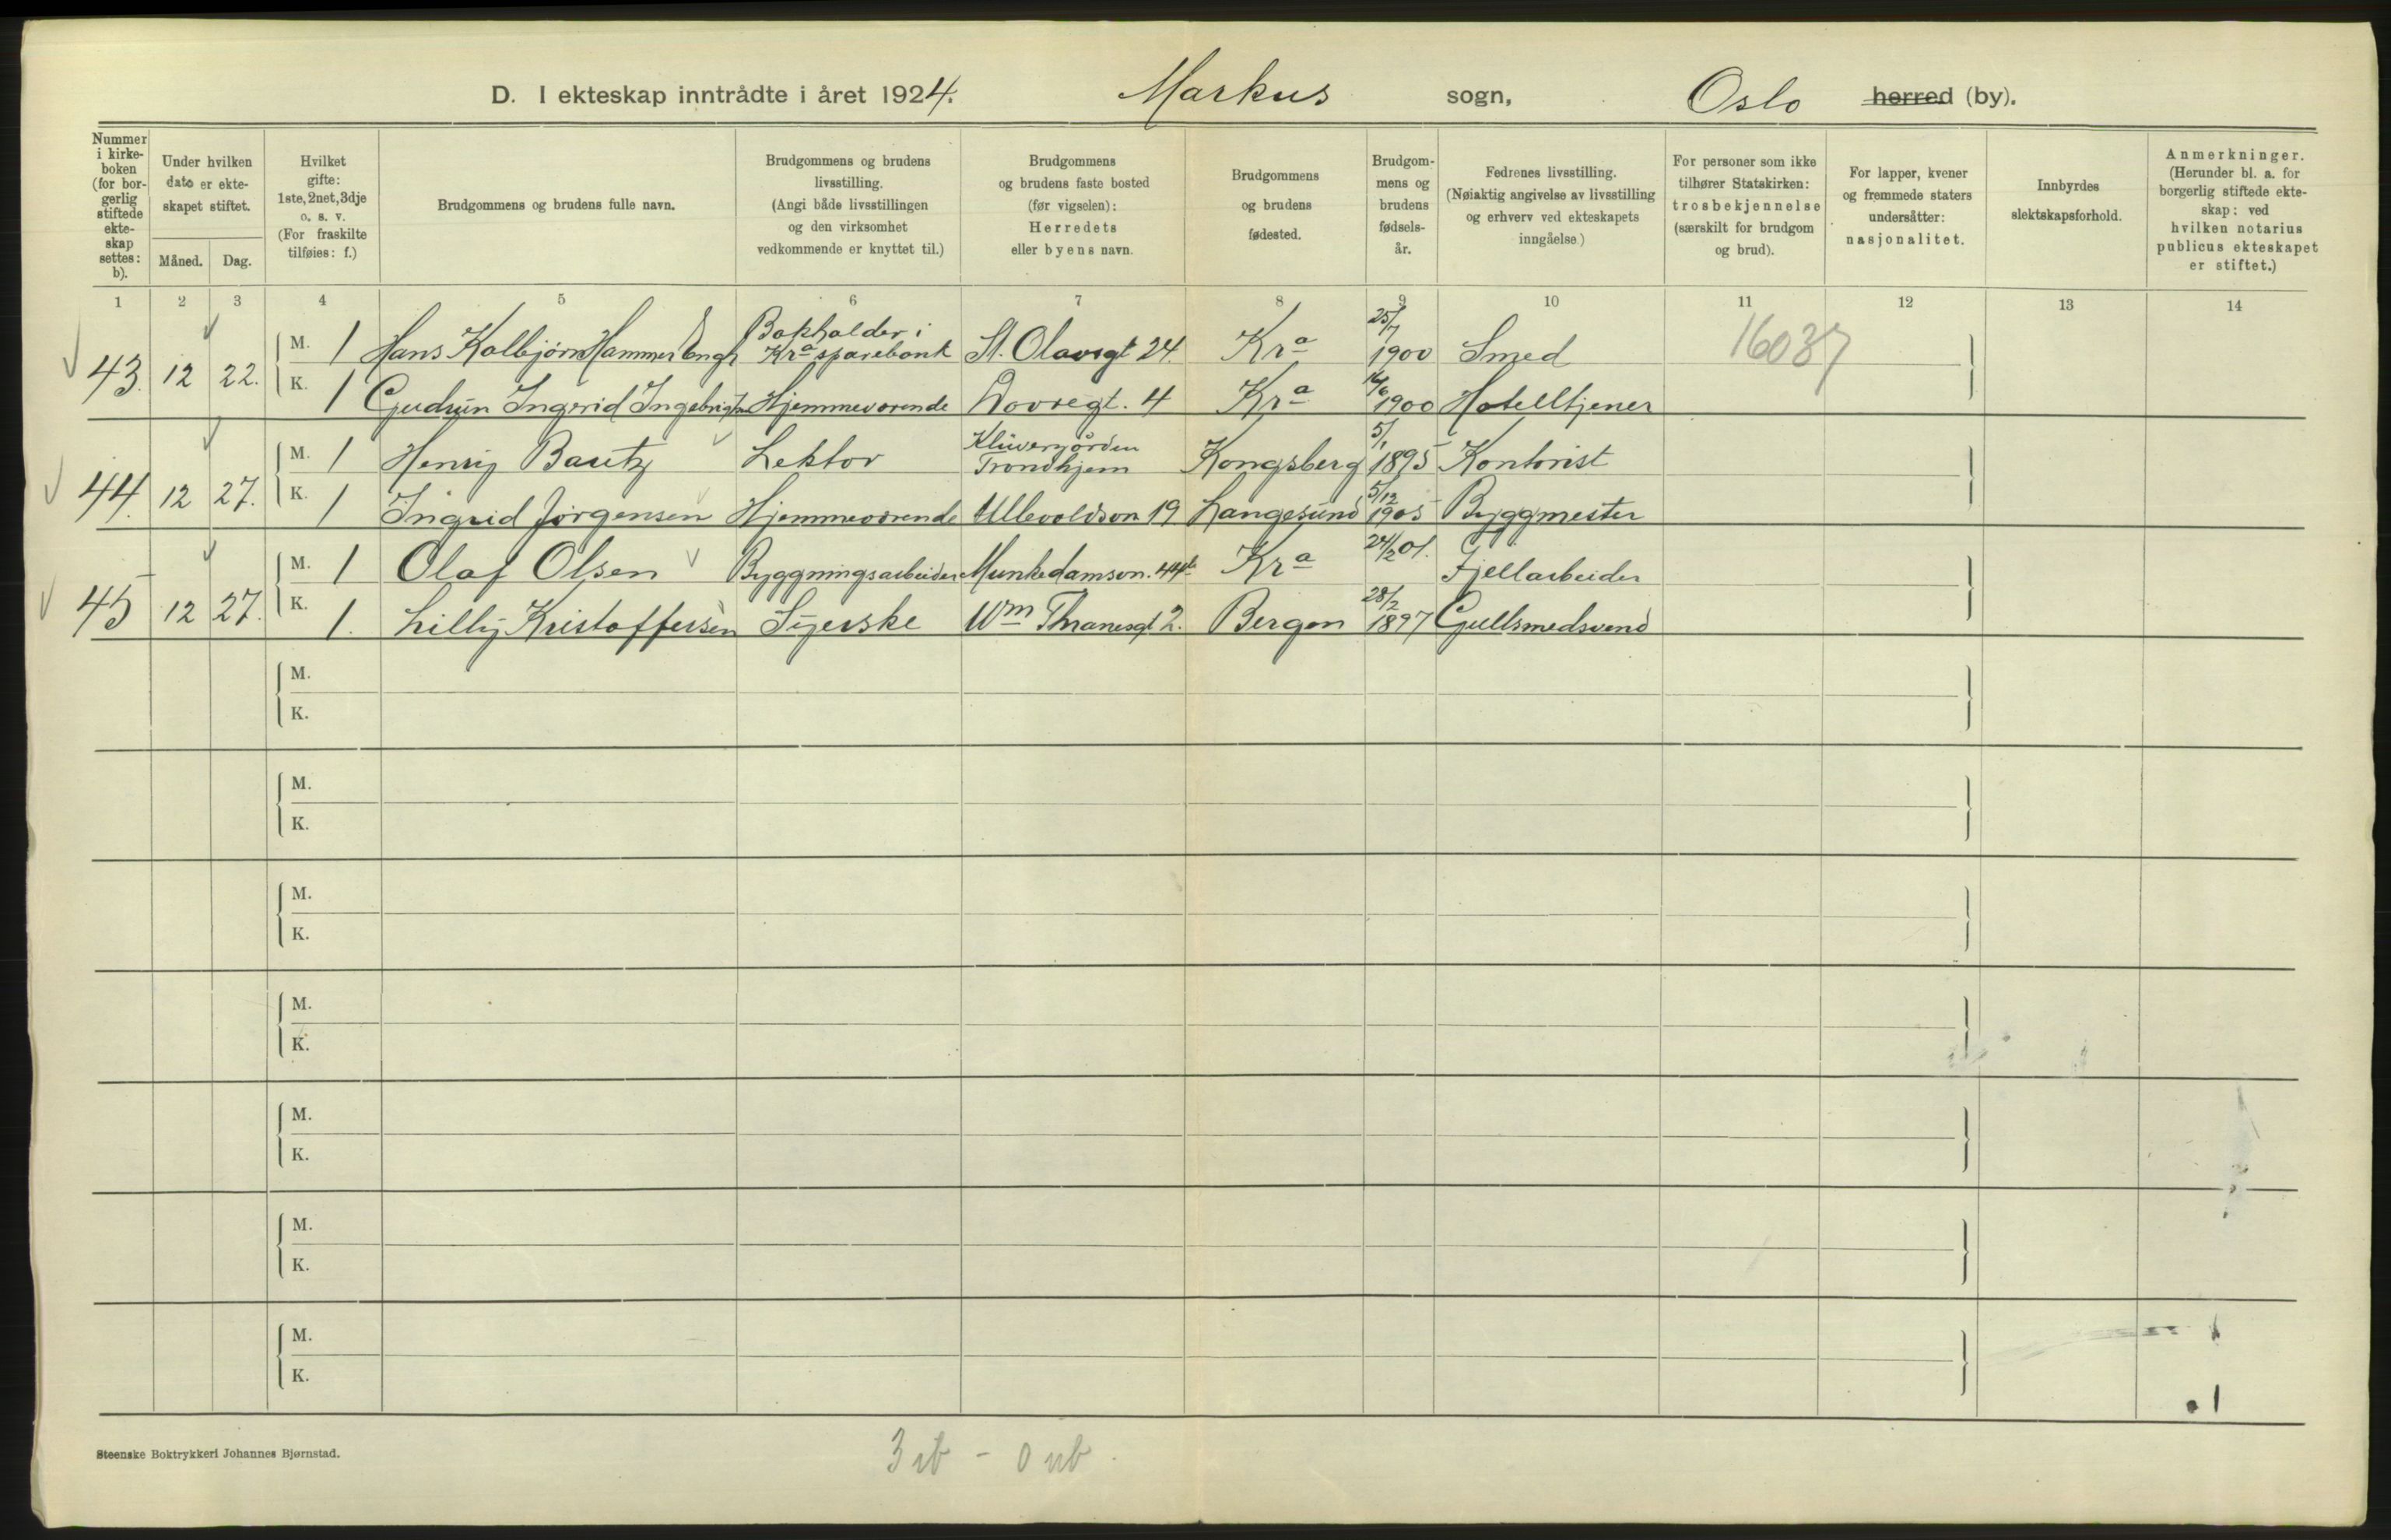 D. I ekteskap inntrådte i året 1924. Markus sogn, Oslo herred (by).
Nummer i kirke- boken (for bor- gerlig stiftede ekte- skap settes: b).
Under hvilken dato er ekte- skapet stiftet.
Måned. Dag.
Hvilket gifte: 1ste, 2net, 3dje o. s. v. (For fraskilte tilføies: f.)
Brudgommens og brudens fulle navn.
Brudgommens og brudens livsstilling. (Angi både livsstillingen og den virksomhet vedkommende er knyttet til.)
Brudgommens og brudens faste bosted (før vigselen): Herredets eller byens navn.
Brudgommens og brudens fødested.
Brudgom- mens og brudens fødsels- år.
Fedrenes livsstilling. (Nøiaktig angivelse av livsstilling og erhverv ved ekteskapets inngåelse)
For personer som ikke tilhører Statskirken: trosbekjennelse (særskilt for brudgom og brud).
For lapper, kvener og fremmede staters undersåtter: nasjonalitet.
Innbyrdes slektskapsforhold.
Anmerkninger. (Herunder bl. a. for borgerlig stiftede ekte- skap: ved hvilken notarius publicus ekteskapet er stiftet.)
1 2 3 4 5 6 7 8 9 10 11 12 13 14
43. 12 22. M. 1 Hans Kolbjørn Hammer Engh Bokholder i Kra sparebank St. Olavsgt 24. Kra 25/7 1900 Smed 16037
K. 1 Gudrun Ingerid Hjemmeværende Dovregt. 4 Kra 1900 Hotelltjener
44. 12 27. M. 1 Henrij Bautz Lektor Klüwergården Trondhjem Kongsberg 5/1 1895 Kontorist
K. 1 Ingrid Jørgensen Hjemmeværende Ullevoldsvn 19 Langesund 5/12 1905 Byggmester
45 12 27. M. 1 Olaf Olsen Byggningsarbeider Munkedamsvn. 44b Kra 24/2 01. Fjellarbeider
K. 1. Lilly Kristoffersen Syerske Wm Thranesgt 2. Bergen 28/2 1897 Gullsmedsvend
M.
K.
M.
K.
M.
K.
M.
K.
M.
K.
M.
K.
M.
K.
Steenske Boktrykkeri Johannes Bjørnstad.
3 ib - 0 ub.